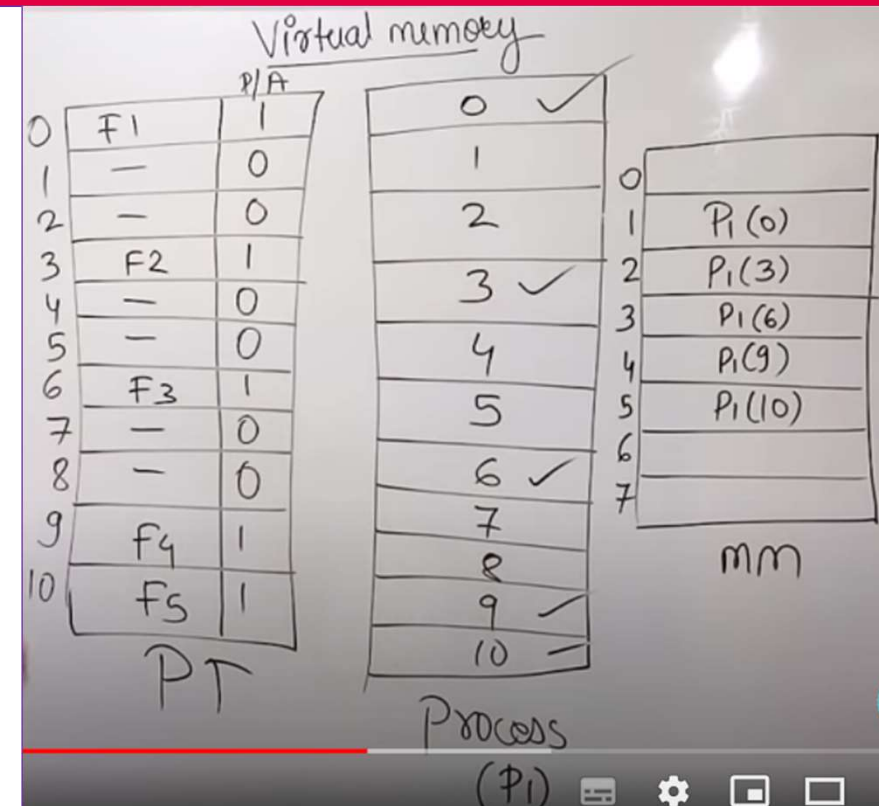 Virtual memory
P/A
0 F1 1
1 — 0
2 — 0
3 F2 1
4 — 0
5 — 0
6 F3 1
7 — 0
8 — 0
9 F4 1
10 F5 1
PT
0 ✓
1
2
3 ✓
4
5
6 ✓
7
8
9 ✓
10 —
Process
(P1)
0
1 P1(0)
2 P1(3)
3 P1(6)
4 P1(9)
5 P1(10)
6
7
mm